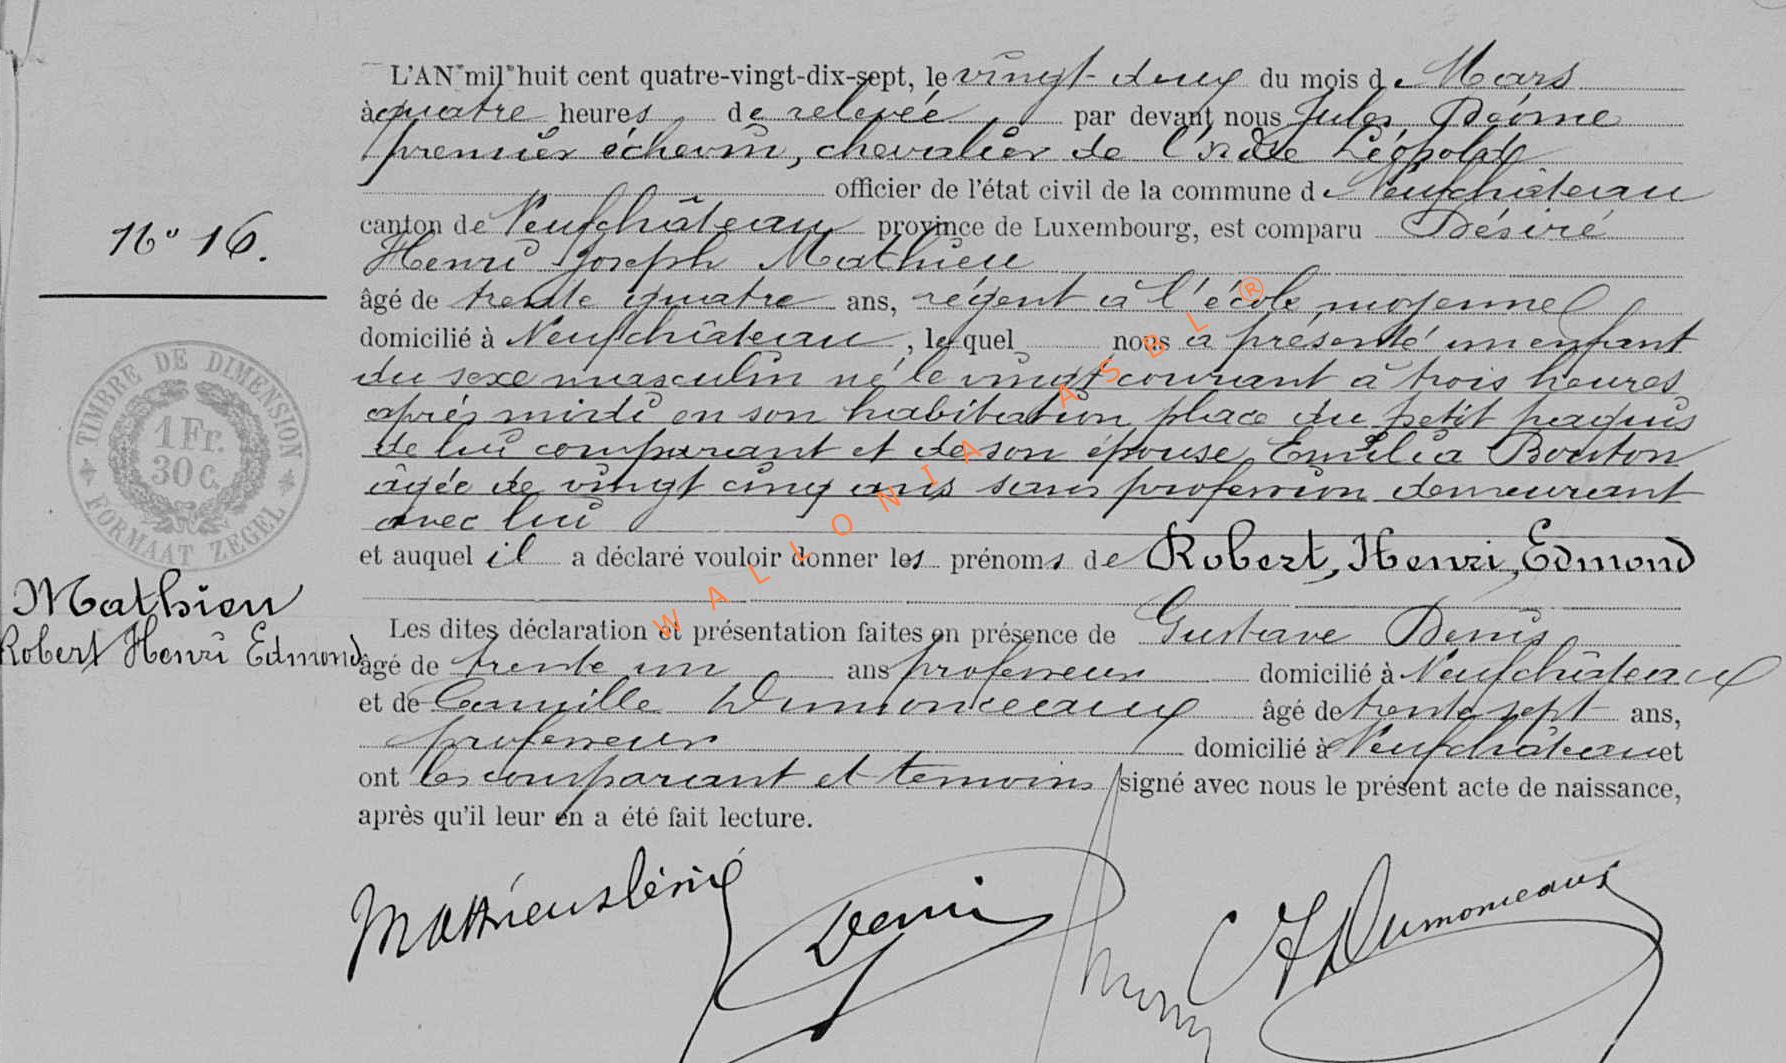 L'AN mil huit cent quatre-vingt-dix-sept, le vingt-deux du mois de Mars
à quatre heures de relevée par devant nous Jules Déôme
premier échevin, chevalier de l'ordre Léopold
officier de l'état civil de la commune de Neufchâteau
N° 16.
canton de Neufchâteau province de Luxembourg, est comparu Désiré
Henri Joseph Mathieu
âgé de trente quatre ans, régent à l'école moyenne
domicilié à Neufchâteau, lequel nous a présenté un enfant
du sexe masculin né le vingt courant à trois heures
après midi en son habitation place du petit paquis
de lui comparant et de son épouse Emilia Bouton
âgée de vingt cinq ans sans profession demeurant
avec lui
et auquel il a déclaré vouloir donner les prénoms de Robert, Henri, Edmond
TIMBRE DE DIMENSION
1 Fr.
30 C.
FORMAAT ZEGEL
Mathieu
Robert Henri Edmond
Les dites déclaration et présentation faites en présence de Gustave Denis
âgé de trente un ans professeur domicilié à Neufchâteau
et de Camille Dumonceaux âgé de trente sept ans,
professeur domicilié à Neufchâteau et
ont les comparant et temoins signé avec nous le présent acte de naissance,
après qu'il leur en a été fait lecture.
Mathieu Désiré Denis Dumonceaux
WALLONIA ASBL ®